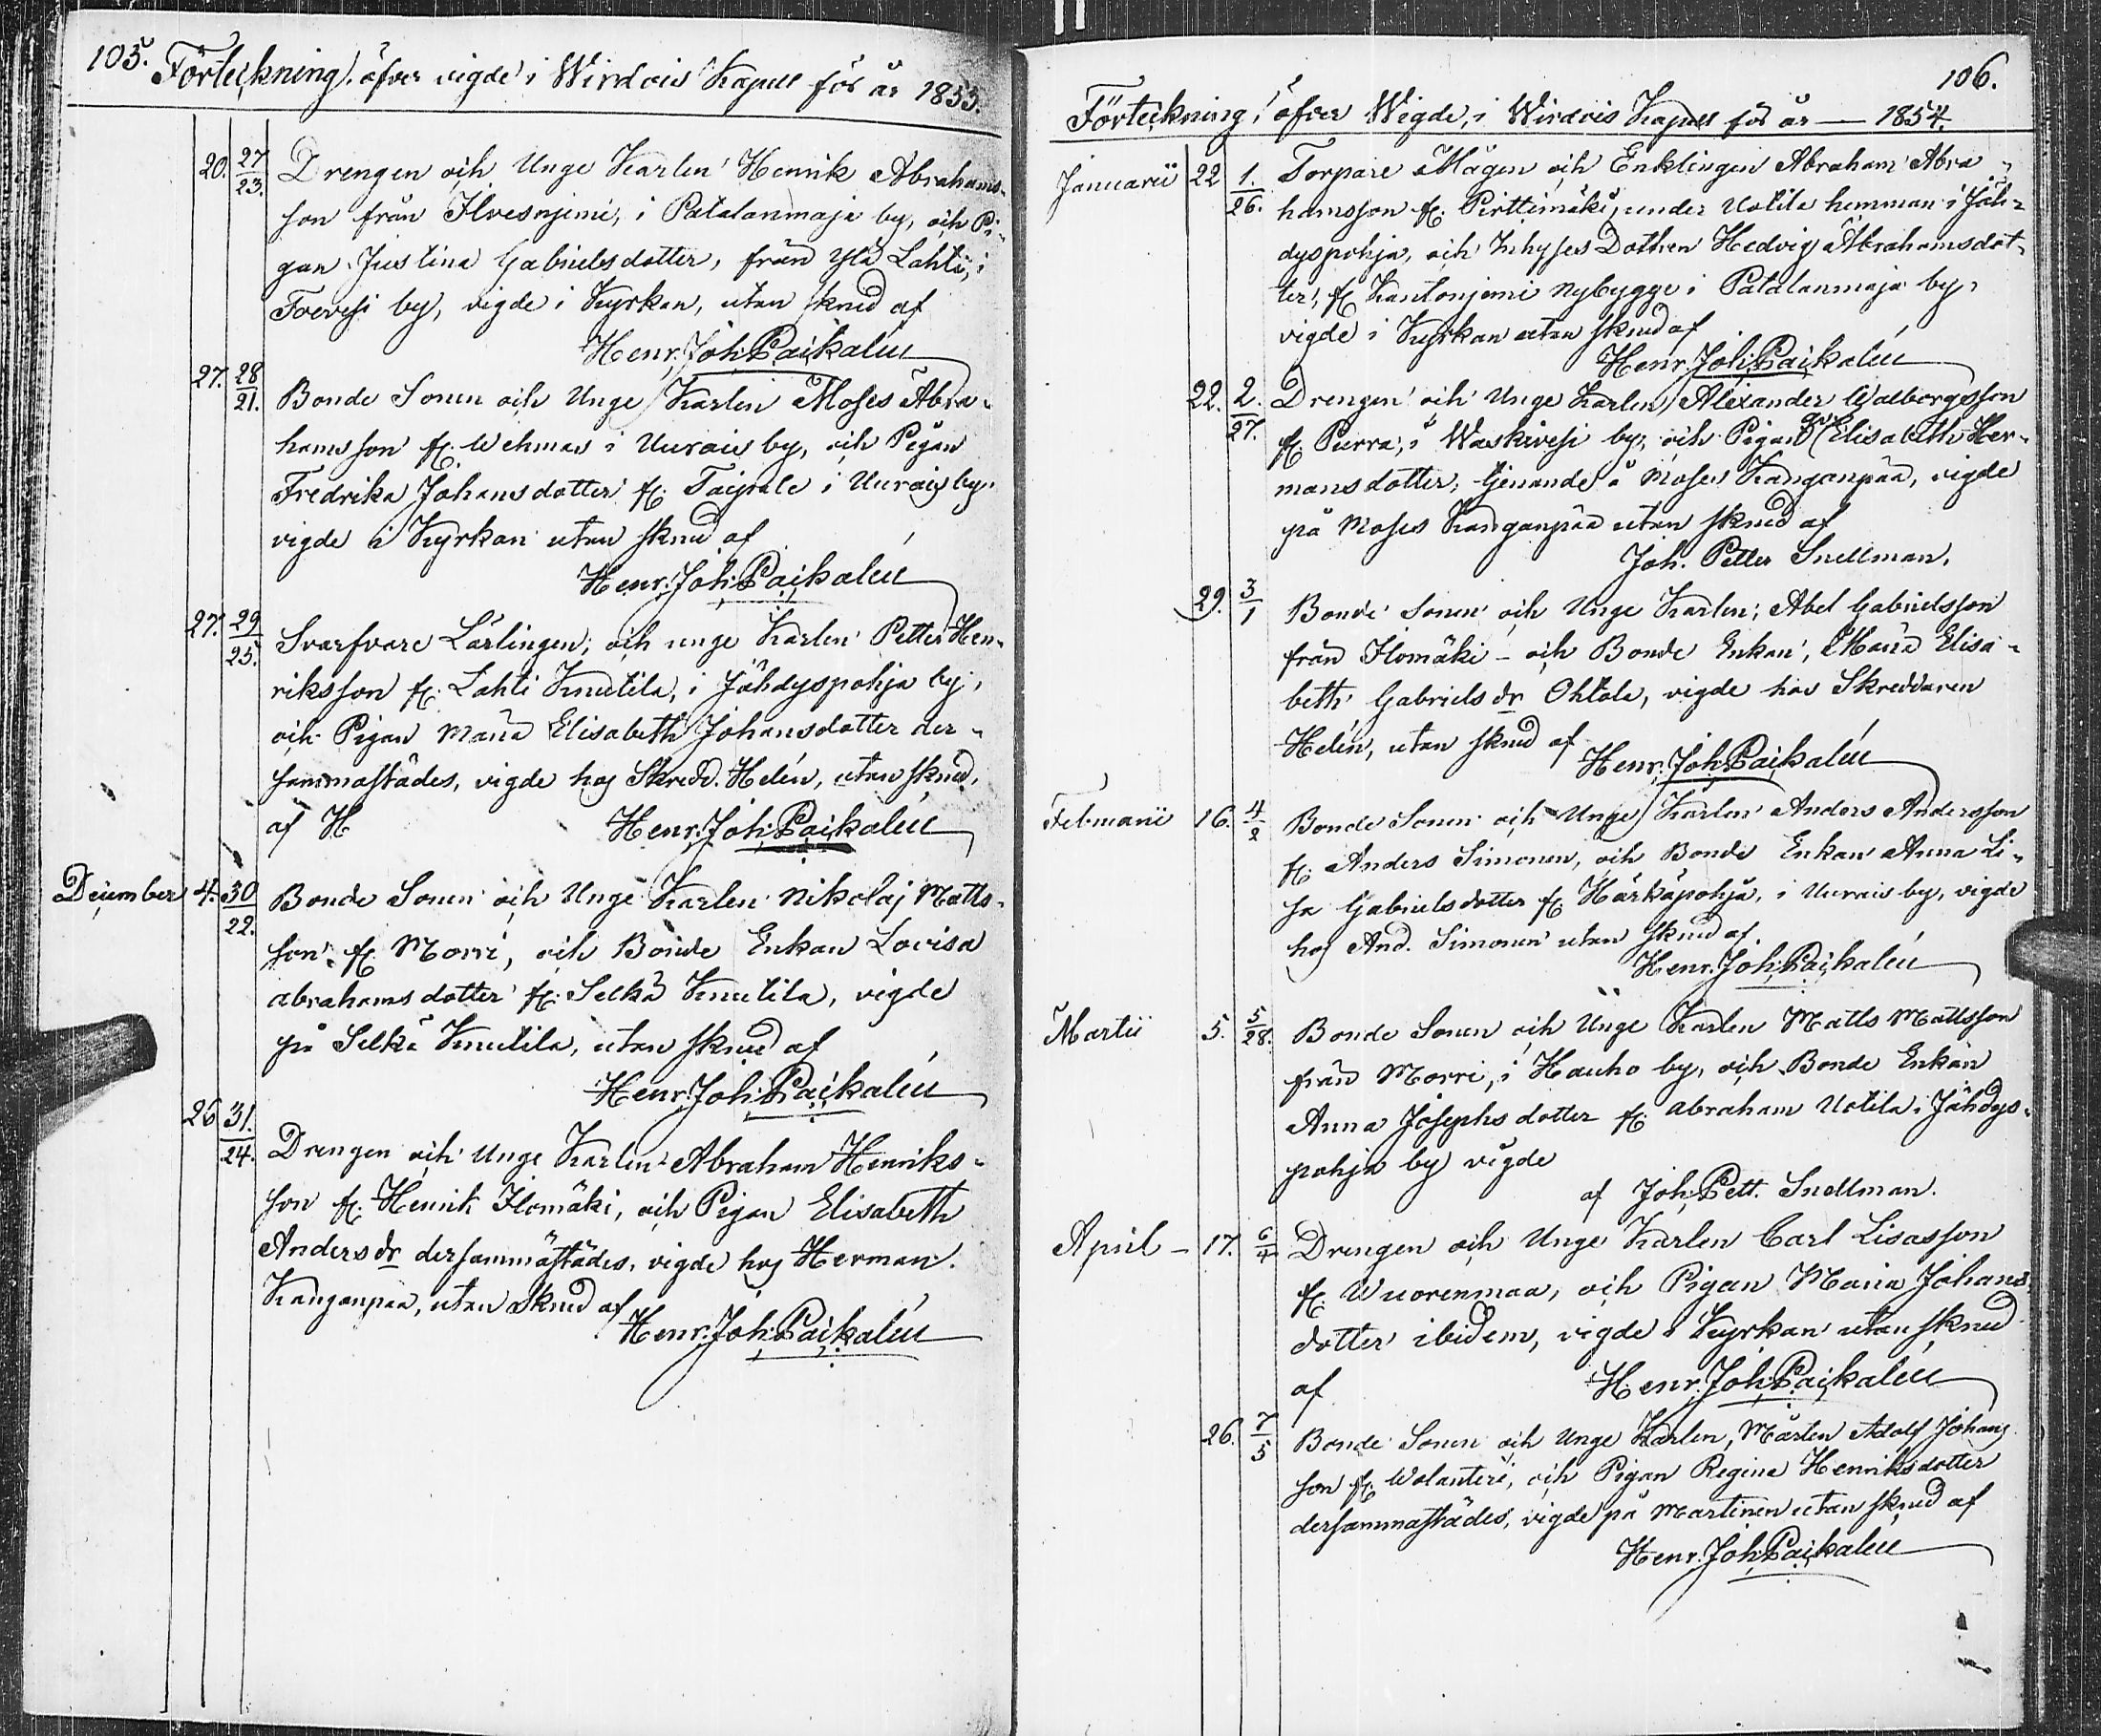 105. Förteckning öfver vigde i Wirdois Kapell för år 1853.
20. 27/23. Drengen och Unge Karlen Henrik Abrahams-
son från Ilvesnjemi, i Patalanmaja by, och Pi-
gan Justina Gabrielsdotter, från Ylä Lahti, i
Toevesi by, vigde i Kyrkan, utan skrud af
Henr. Joh. Paikalén
27. 28/21. Bonde Sonen och Unge Karlen Moses Abra-
hamsson fr. Wehmas i Uurais by, och Pigan
Fredrika Johansdotter fr. Taipale i Uurais by.
vigde i Kyrkan utan skrud af
Henr. Joh. Paikalén
27. 29/25. Svarfvare Lärlingen, och unge Karlen Petter Hen-
riksson fr. Lahti Knutila, i Jähdyspohja by,
och Pigan Maria Elisabeth Johansdotter der-
sammastädes, vigde hos Skredd. Helén, utan skrud,
af H Henr. Joh. Paikalén
December 4. 30/22. Bonde Sonen och Unge Karlen Nikolaj Matts-
son fr. Morri, och Bonde Enkan Lovisa
Abrahamsdotter fr. Selkä Knutila, vigde
på Selkä Knutila, utan skrud af
Henr. Joh. Paikalén
26 31./24. Drengen och Unge Karlen Abraham Henriks-
son fr. Henrik Ilomäki, och Pigan Elisabeth
Andersdr dersammastädes, vigde hos Herman
Kanganpää, utan skrud af
Henr. Joh. Paikalén
106.
Förteckning öfver Wigde, i Wirdois Kapell för år — 1854.
Januarii 22 1./26. Torpare Mågen och Enklingen Abraham Abra-
hamsson fr. Pirttimäki, under Uotila hemman i Jäh-
dyspohja, och Inhyses Dottren Hedvig Abrahamsdot-
ter, fr. Kantonjemi Nybygge i Patalanmaja by,
vigde i Kyrkan utan skrud af
Henr. Joh. Paikalén
22. 2./27. Drengen och Unge Karlen Alexander Walborgsson
fr. Purra, i Waskivesi by, och Pigan Elisabeth Her-
mansdotter, tjenande å Moses Kanganpää, vigde
på Moses Kanganpää utan skrud af
Joh. Petter Snellman.
29. 3/1 Bonde Sonen och Unge Karlen, Abel Gabrielsson
från Ilomäki - och Bonde Enkan, Maria Elisa-
beth Gabriels dr Ohtola, vigde hos Skreddaren
Helén, utan skrud af
Henr. Joh. Paikalén
Februarii 16. 4/2 Bonde Sonen och Unge Karlen Anders Andersson
fr. Anders Simonen, och Bonde Enkan Anna Li-
sa Gabrielsdotter fr. Härkäpohja, i Uurais by, vigde
hos And. Simonen utan skrud af
Henr. Joh. Paikalén
Martii 5. 5/28. Bonde Sonen och Unge Karlen Matts Mattsson
från Morri, i Hauho by, och Bonde Enkan
Anna Josephsdotter fr. Abraham Uotila i Jähdys-
pohja by vigde
af Joh. Pett. Snellman.
April - 17. 6/4 Drengen och Unge Karlen Carl Lisasson
fr. Wuorenmaa, och Pigan Maria Johans-
dotter ibidem, vigde i Kyrkan utan skrud
af Henr. Joh. Paikalén
26. 7/5 Bonde Sonen och Unge Karlen, Mårten Adolf Johans
son fr. Wolanteri, och Pigan Regina Henriksdotter
dersammastädes, vigde på Martinen utan skrud af
Henr. Joh. Paikalén